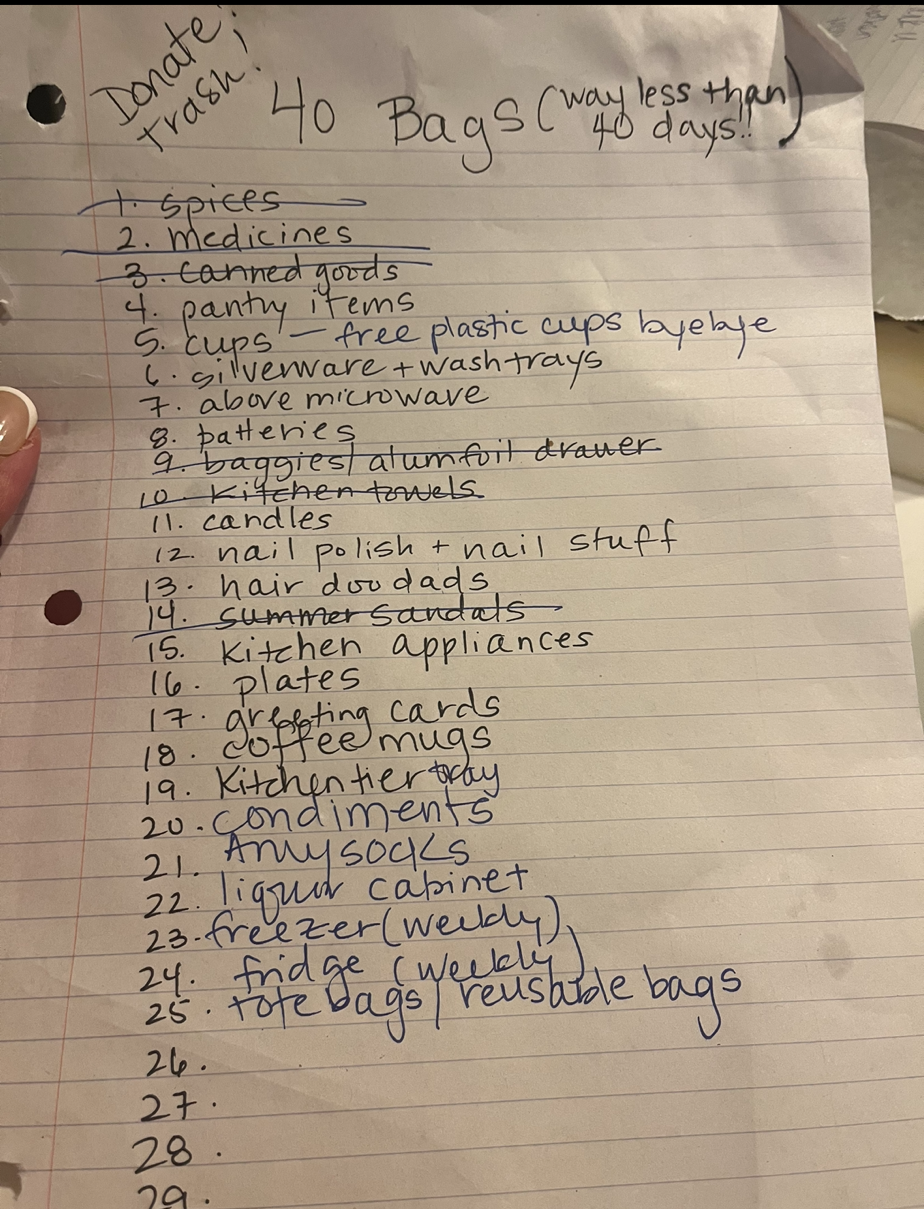 Donate;
trash!
40 Bags (way less than
40 days!!)
1. spices
2. medicines
3. canned goods
4. pantry items
5. cups — free plastic cups byebye
6. silverware + wash trays
7. above microwave
8. batteries
9. baggies/alum foil drawer
10. Kitchen towels
11. candles
12. nail polish + nail stuff
13. hair doodads
14. summer sandals
15. Kitchen appliances
16. plates
17. greeting cards
18. coffee mugs
19. Kitchen tier tray
20. condiments
21. Amy socks
22. liquor cabinet
23. freezer (weekly)
24. fridge (weekly)
25. tote bags / reusable bags
26.
27.
28.
29.